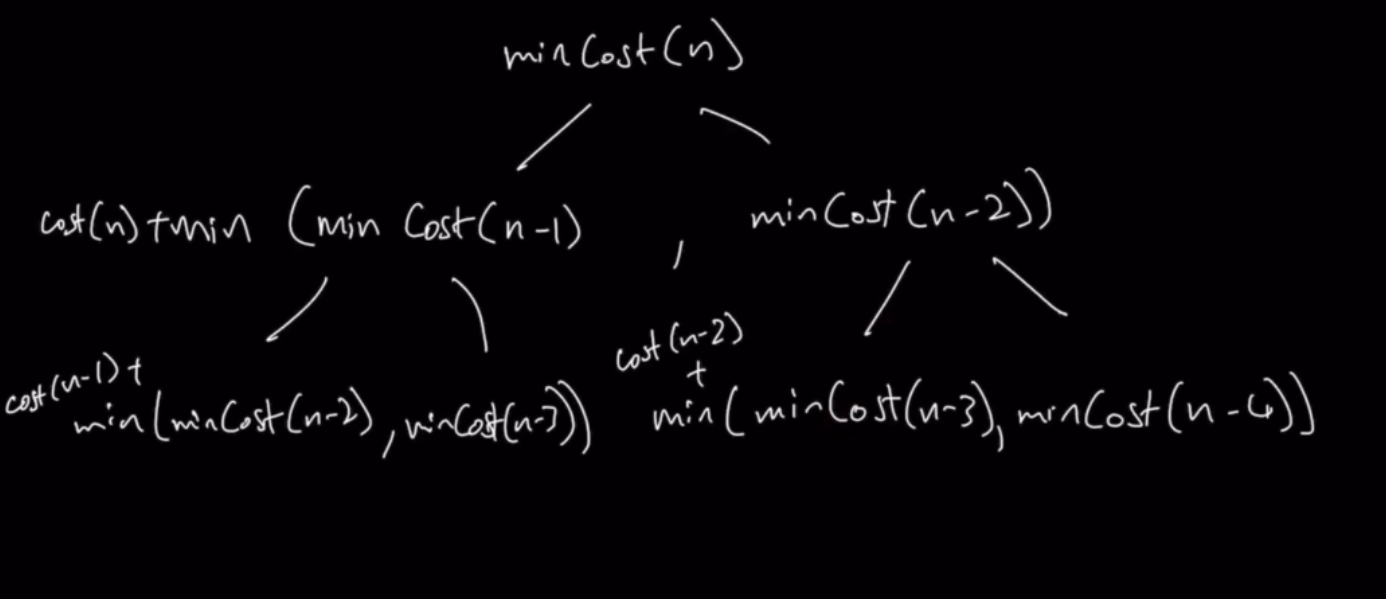 minCost(n)
cost(n)+min (min Cost(n-1) , minCost(n-2))
cost(n-1)+
min(minCost(n-2), minCost(n-3))
cost(n-2)
+
min(minCost(n-3), minCost(n-4))